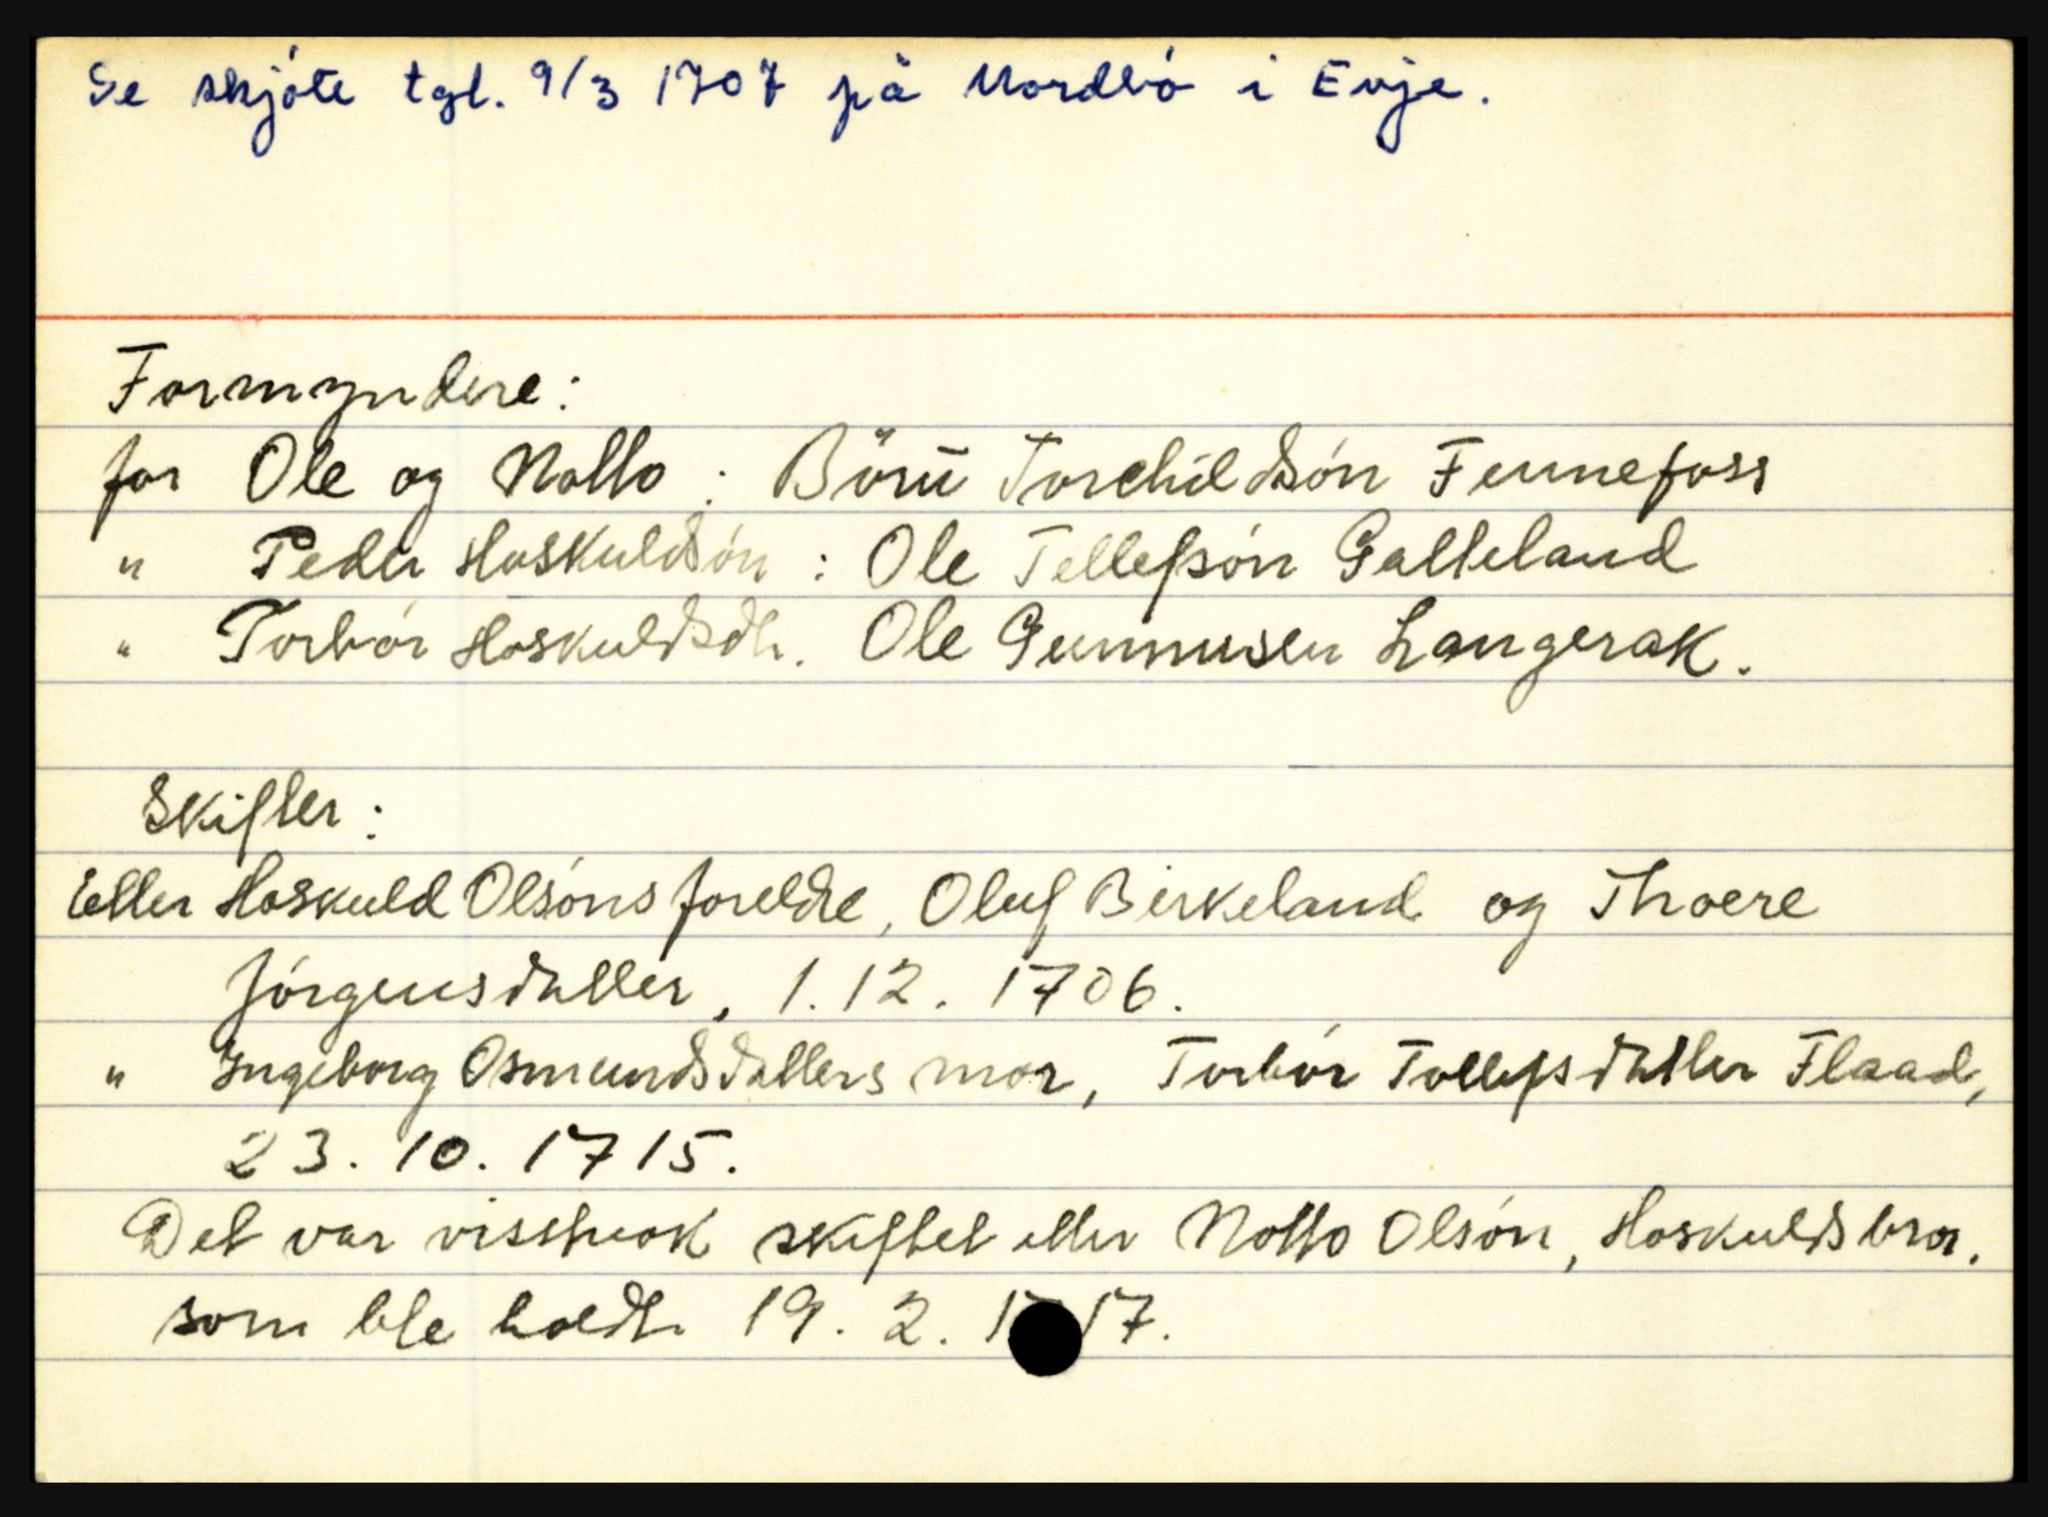 Se skjóte tgl. 9/3 1707 på Nordbó i Evje.
Formyndere:
for Ole og Notto : Böru Torchildsón Fennefoss
" Peder Hoskuldsón : Ole Tellefsón Galteland
" Torbór Hoskuldsdtr. Ole Gunnusen Langerak.
Skifter:
Etter Hoskuld Olsóns foreldre, Oluf Birkeland og Thoere
Jórgensdatter, 1.12.1706.
" Ingeborg Osmundsdatters mor, Torbór Tollefsdatter Flaad,
23.10.1715.
Det var visstnok skiftet etter Notto Olsón, Hoskulds bror,
som ble holdt 19.2.1717.